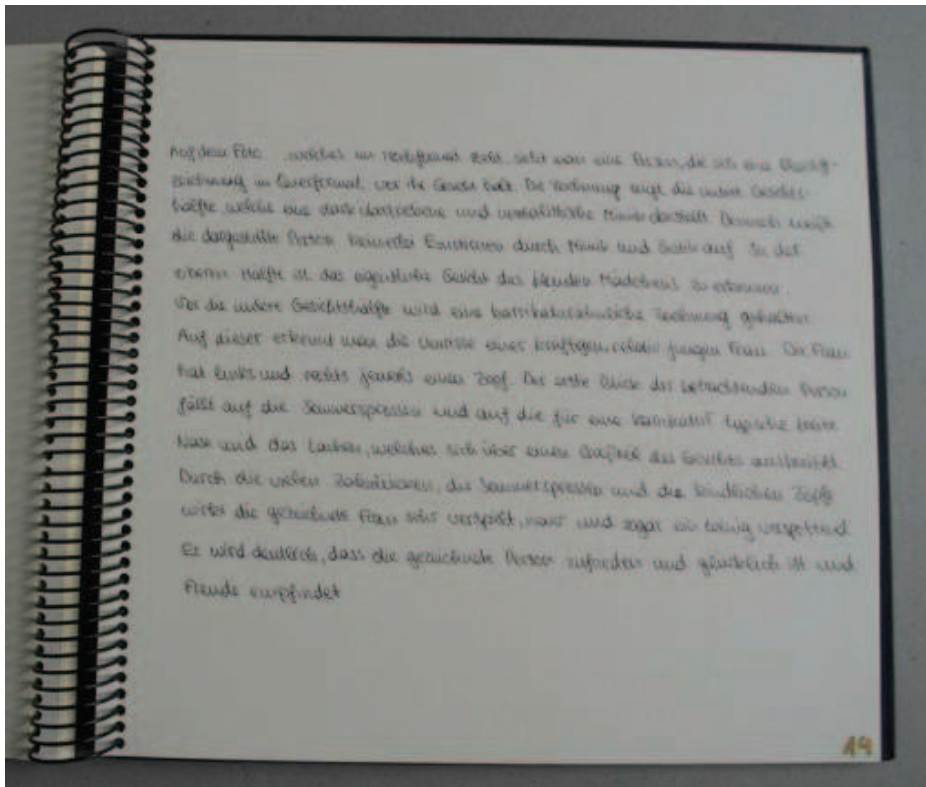 Auf dem Foto, welches im Hochformat steht, sieht man eine Person, die sich eine Bleistift-
zeichnung im Querformat vor ihr Gesicht hält. Die Zeichnung zeigt die untere Gesichts-
hälfte, welche eine und Mimik darstellt. Dennoch weist
die dargestellte Person keinerlei Emotionen durch Mimik und Gestik auf. In der
oberen Hälfte ist das eigentliche Gesicht des blonden Mädchens zu erkennen.
Vor die untere Gesichtshälfte wird eine karrikaturähnliche Zeichnung gehalten.
Auf dieser erkennt man die Umrisse einer kräftigen, relativ jungen Frau. Die Frau
hat links und rechts jeweils einen Zopf. Der erste Blick der betrachtenden Person
fällt auf die Sommersprossen und auf die für eine Karrikatur typische breite
Nase und das Lachen, welches sich über einen Großteil des Gesichts ausbreitet.
Durch die vielen Zahnlücken, die Sommersprossen und die kindlichen Zöpfe
wirkt die gezeichnete Frau sehr verspielt, naiv und sogar ein wenig verspottend.
Es wird deutlich, dass die gezeichnete Person zufrieden und glücklich ist und
Freude empfindet.
19